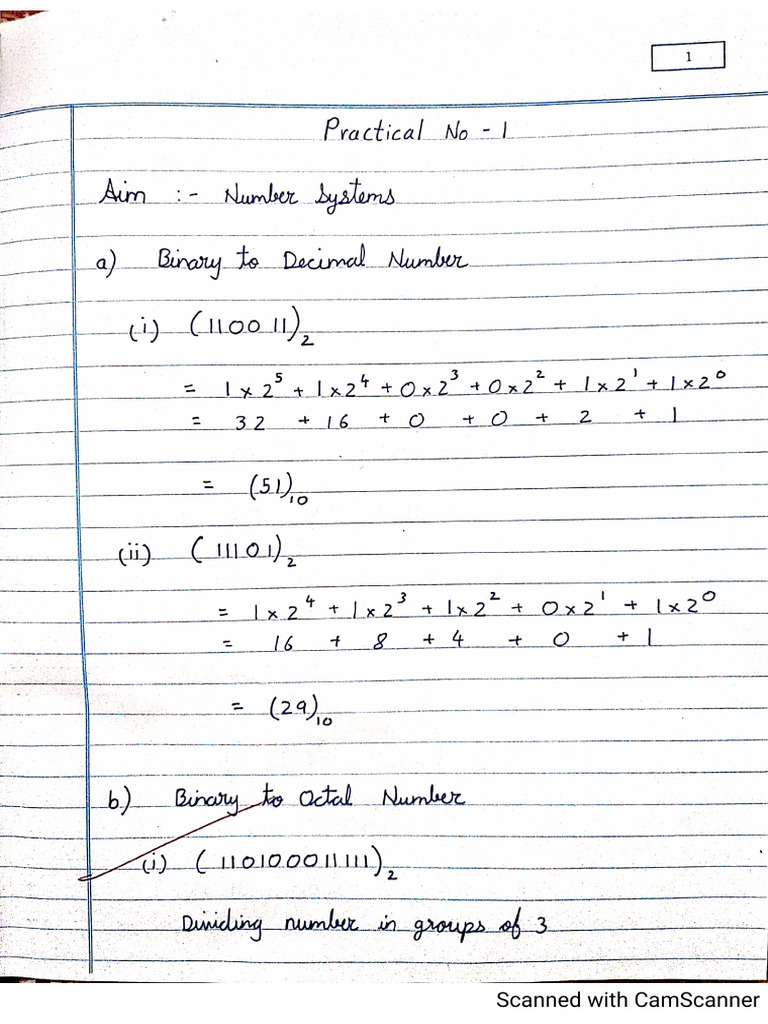 1
Practical No - 1
Aim :- Number Systems
a) Binary to Decimal Number
(i) (110011)₂
= 1 x 2⁵ + 1 x 2⁴ + 0 x 2³ + 0 x 2² + 1 x 2¹ + 1 x 2⁰
= 32 + 16 + 0 + 0 + 2 + 1
= (51)₁₀
(ii) (11101)₂
= 1 x 2⁴ + 1 x 2³ + 1 x 2² + 0 x 2¹ + 1 x 2⁰
= 16 + 8 + 4 + 0 + 1
= (29)₁₀
b) Binary to Octal Number
(i) (110100011111)₂
Dividing number in groups of 3
Scanned with CamScanner